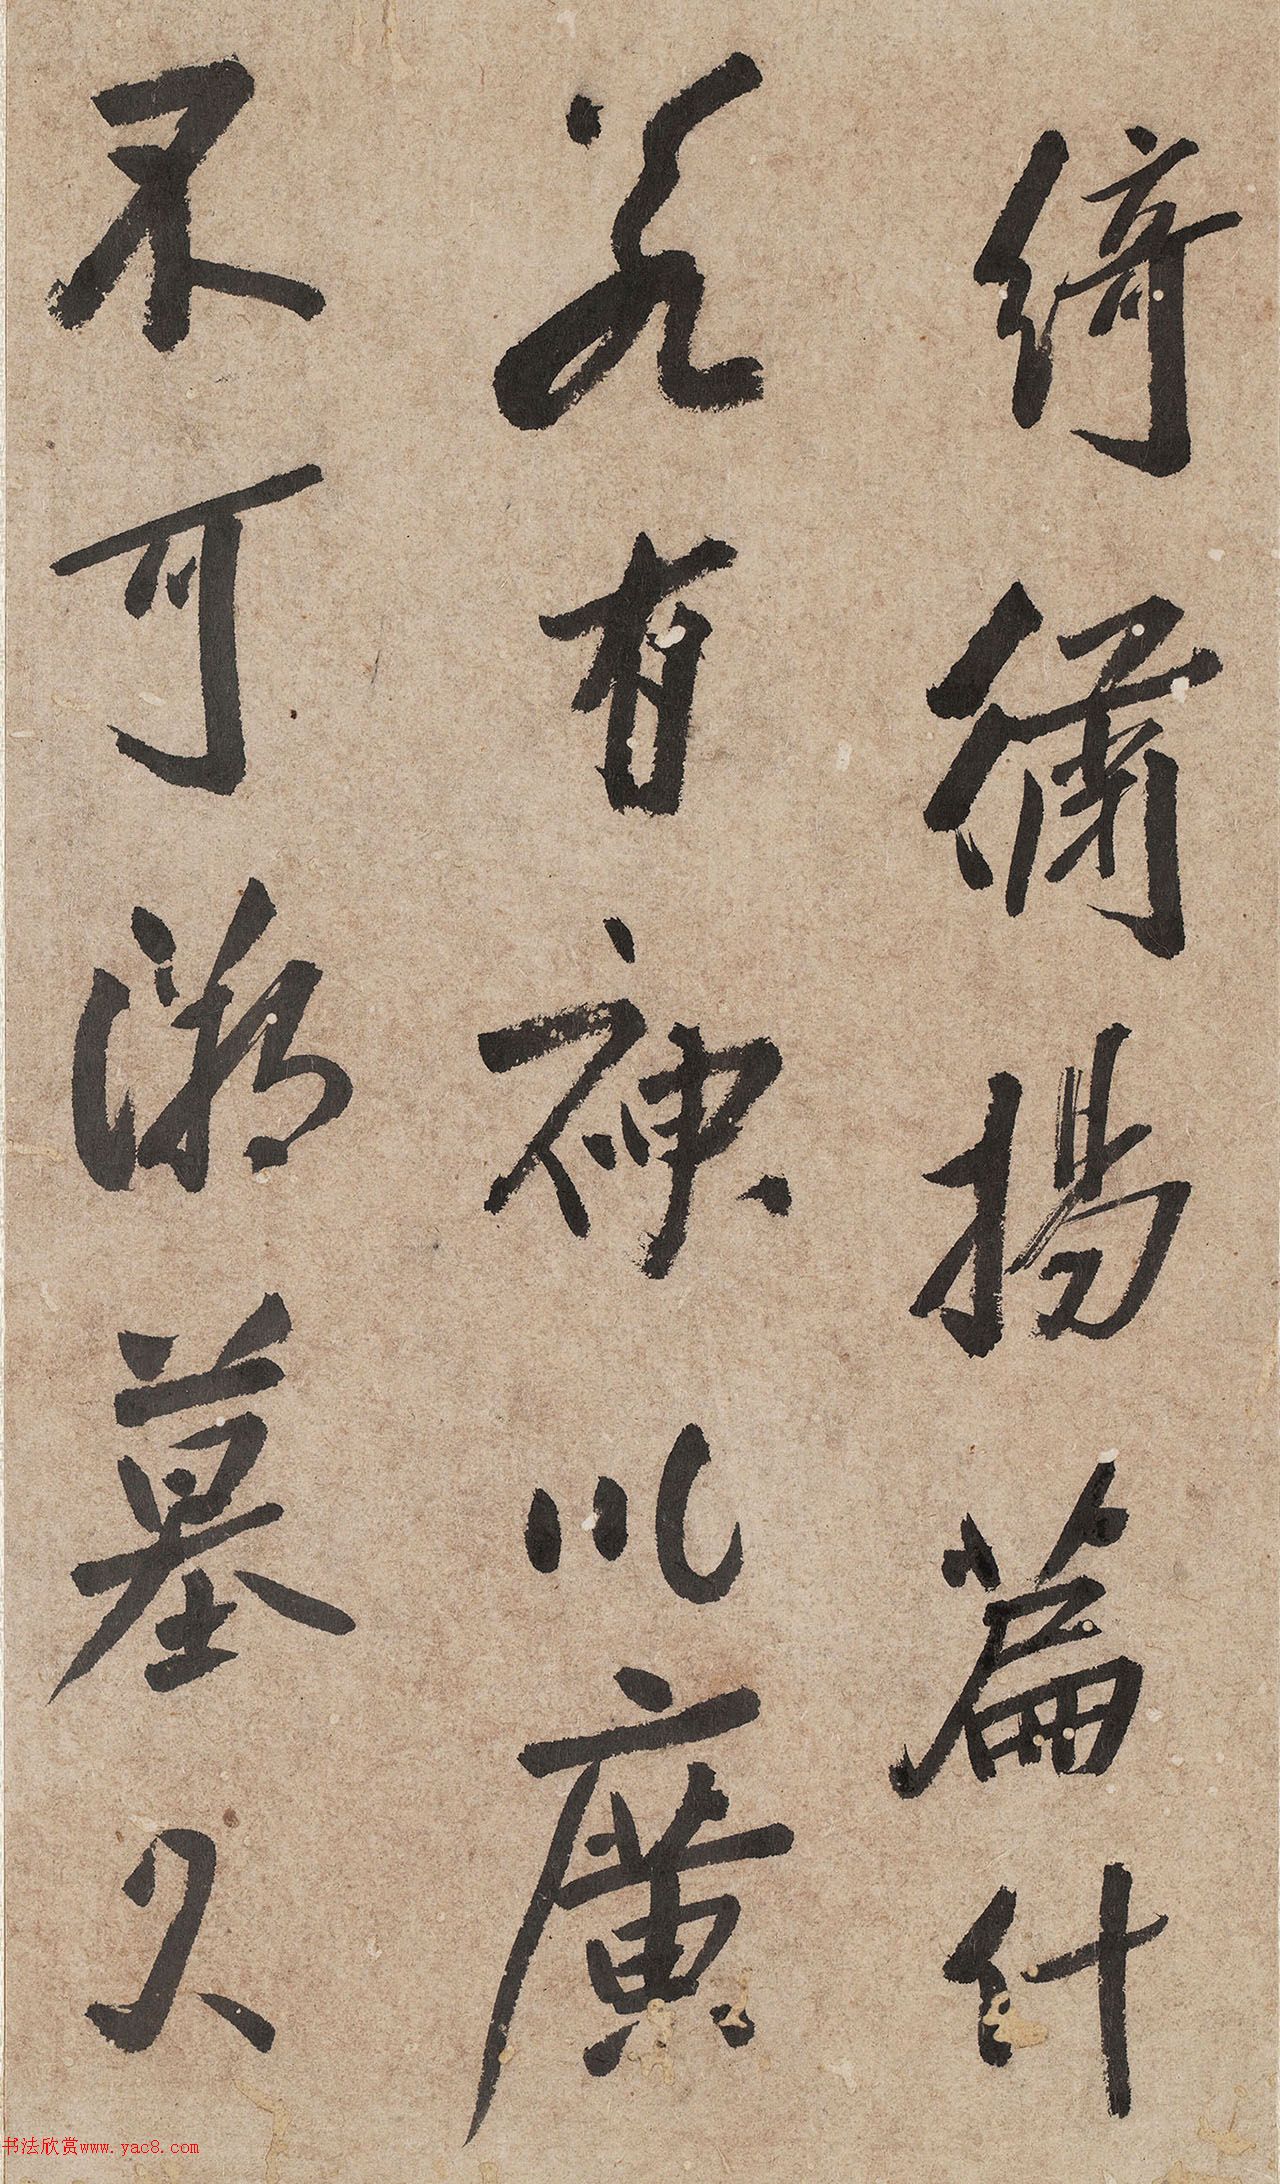 綺繡揚篇什
若有神以廣
不可墓久
书法欣赏www.yac8.com